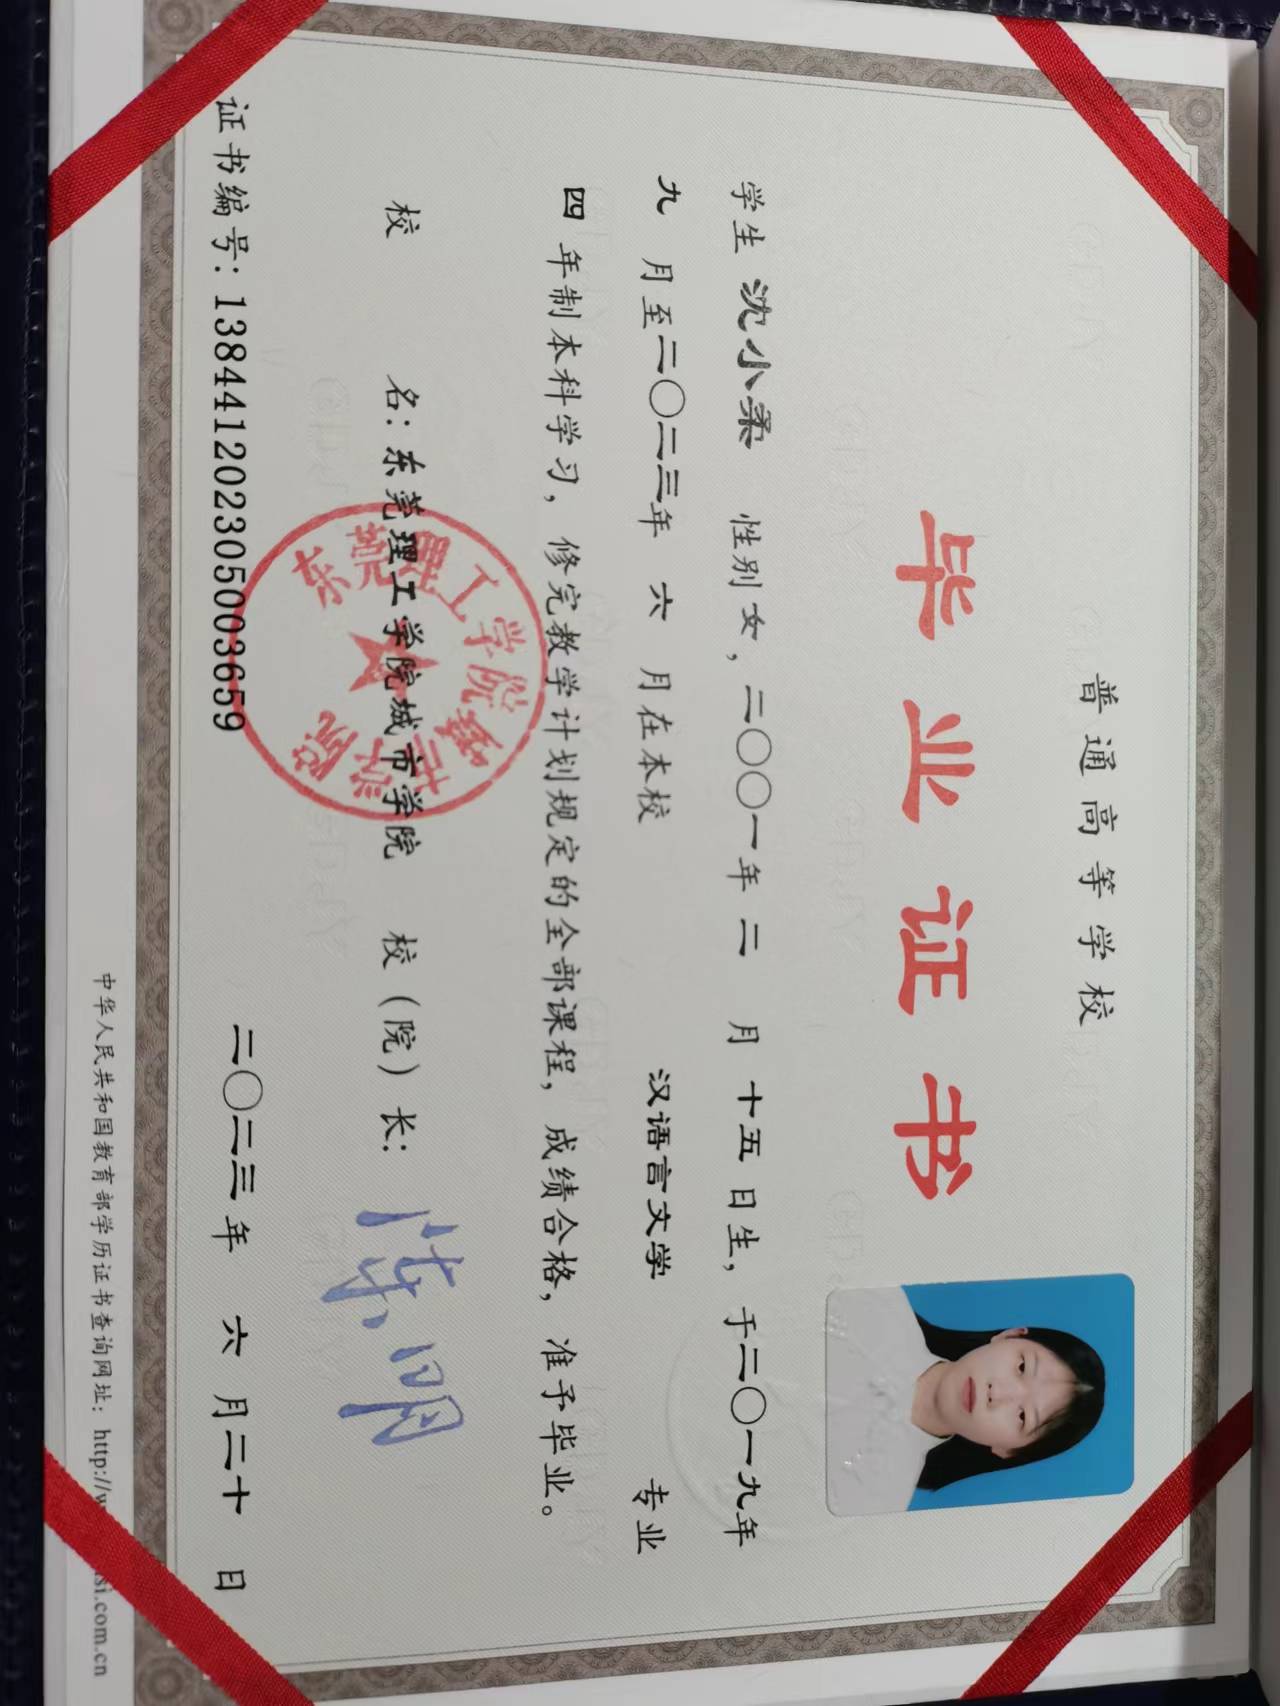 普通高等学校
毕业证书
学生 沈小柔 性别 女，二〇〇一年 二 月 十五 日生，于二〇一九年
九 月至二〇二三年 六 月在本校 汉语言文学 专业
四 年制本科学习，修完教学计划规定的全部课程，成绩合格，准予毕业。
校 名：东莞理工学院城市学院 校（院）长：
东莞理工学院城市学院
证书编号：138441202305003659 二〇二三年 六 月二十 日
中华人民共和国教育部学历证书查询网址：http://w si.com.cn